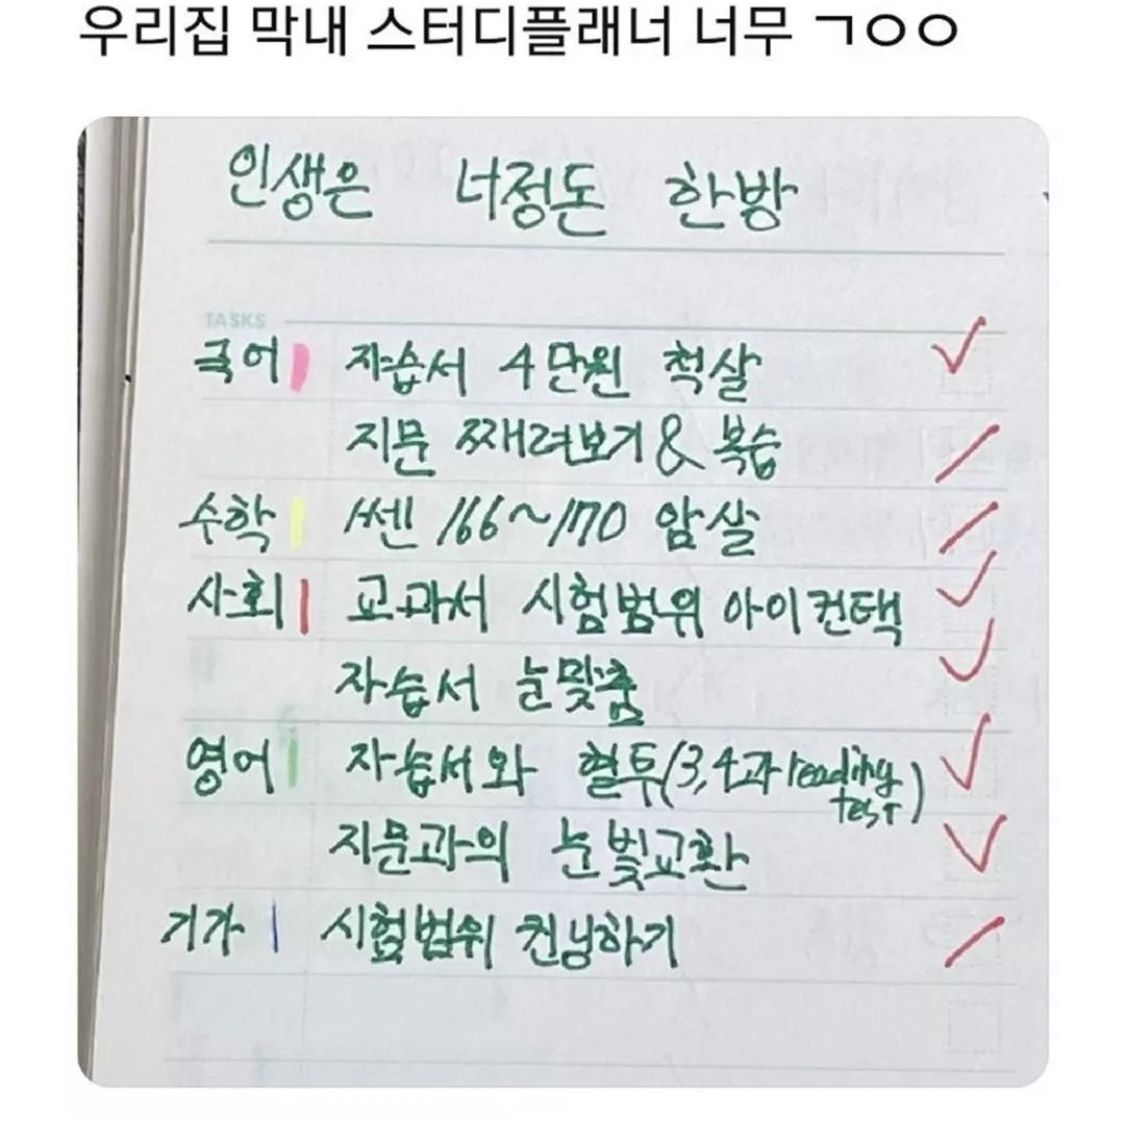 우리집 막내 스터디플래너 너무 ㄱㅇㅇ
인생은 너정돈 한방
TASKS
국어 자습서 4단원 척살
지문 째려보기 & 복습
수학 쎈 166~170 암살
사회 교과서 시험범위 아이컨택
자습서 눈맞춤
영어 자습서와 혈투(3,4과 reading test)
지문과의 눈빛교환
기가 시험범위 컨닝하기